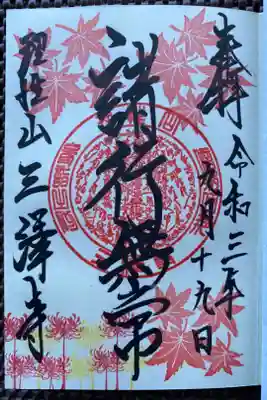 奉拝
令和三年
九月十九日
諸行無常
山三澤寺